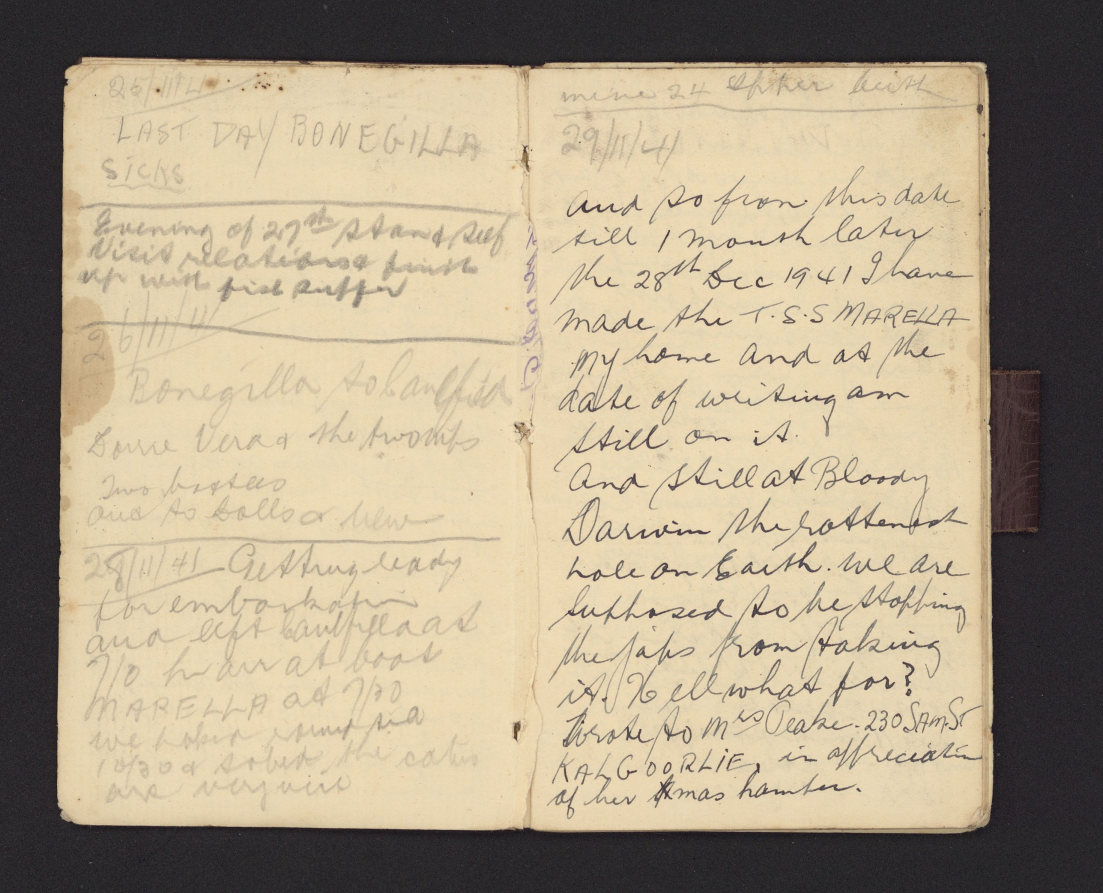 25/11/41
LAST DAY BONEGILLA
SICKS
Evening of 27th Stan & Self
Visit relations & finish
up with fish supper
26/11/41
Bonegilla to Caulfield
Vera & the two
Two
and to Dolls &
28/11/41 Getting ready
for
and left at
7/0 arr at boat
MARELLA at 7/30
we
10/30 & the
are very
mine 24
29/11/41
and so from this date
till 1 month later
the 28th Dec 1941 I have
made the T.S.S MARELLA
my home and at the
date of writing am
still on it.
And still at Bloody
Darwin the rottenest
hole on Earth. we are
supposed to be stopping
the japs from taking
it. Hell what for?
Wrote to Mrs Peake. 230 SAM. ST
KALGOORLIE, in appreciation
of her Xmas hamper.